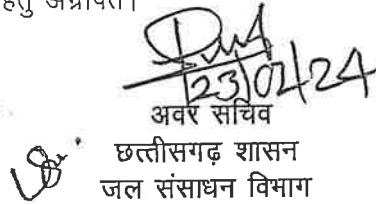 हेतु अग्रेषित।
23/02/24
अवर सचिव
छत्तीसगढ़ शासन
जल संसाधन विभाग